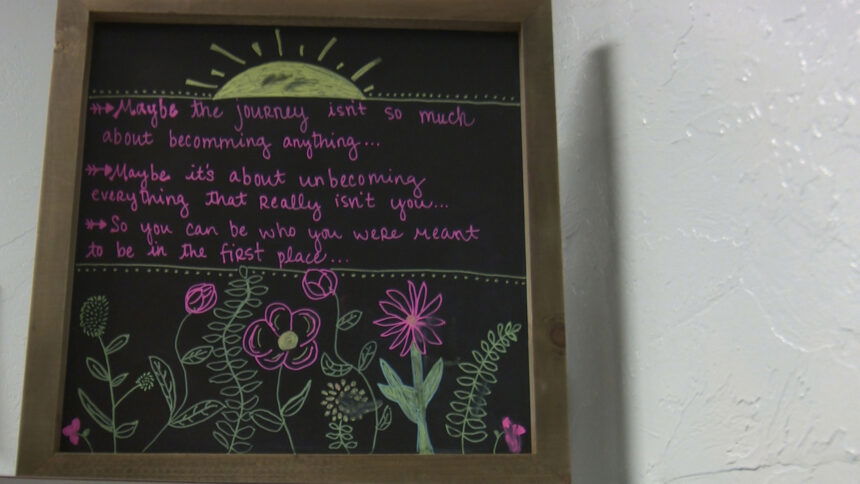 Maybe the journey isn't so much
about becomming anything...
Maybe it's about unbecoming
everything that really isn't you...
So you can be who you were meant
to be in the first place...